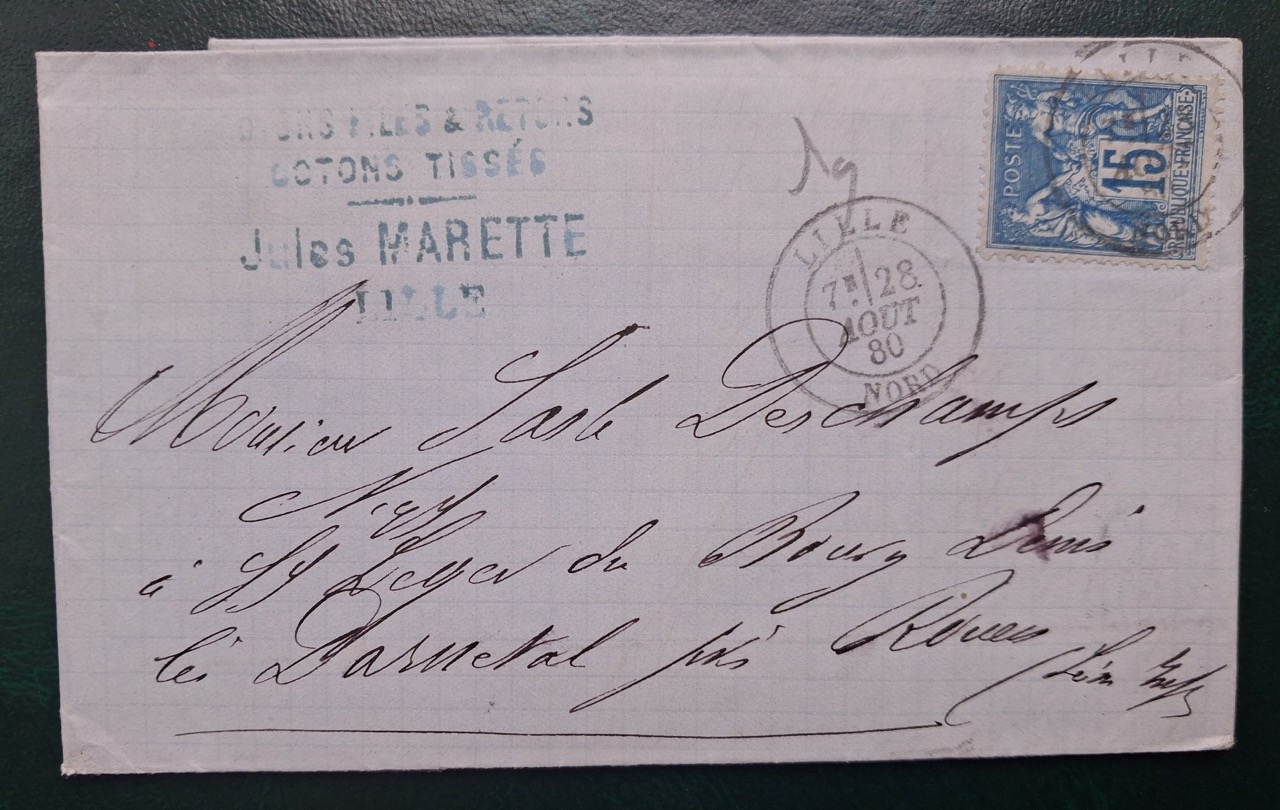 COTONS FILÉS & RETORS
COTONS TISSÉS
Jules MARETTE
LILLE
POSTE
15
REPUBLIQUE FRANÇAISE
LILLE
7E 28
AOUT
80
NORD
Monsieur Deschamps
Ngt
à St Leger du Bourg Denis
lès Darnetal près Rouen